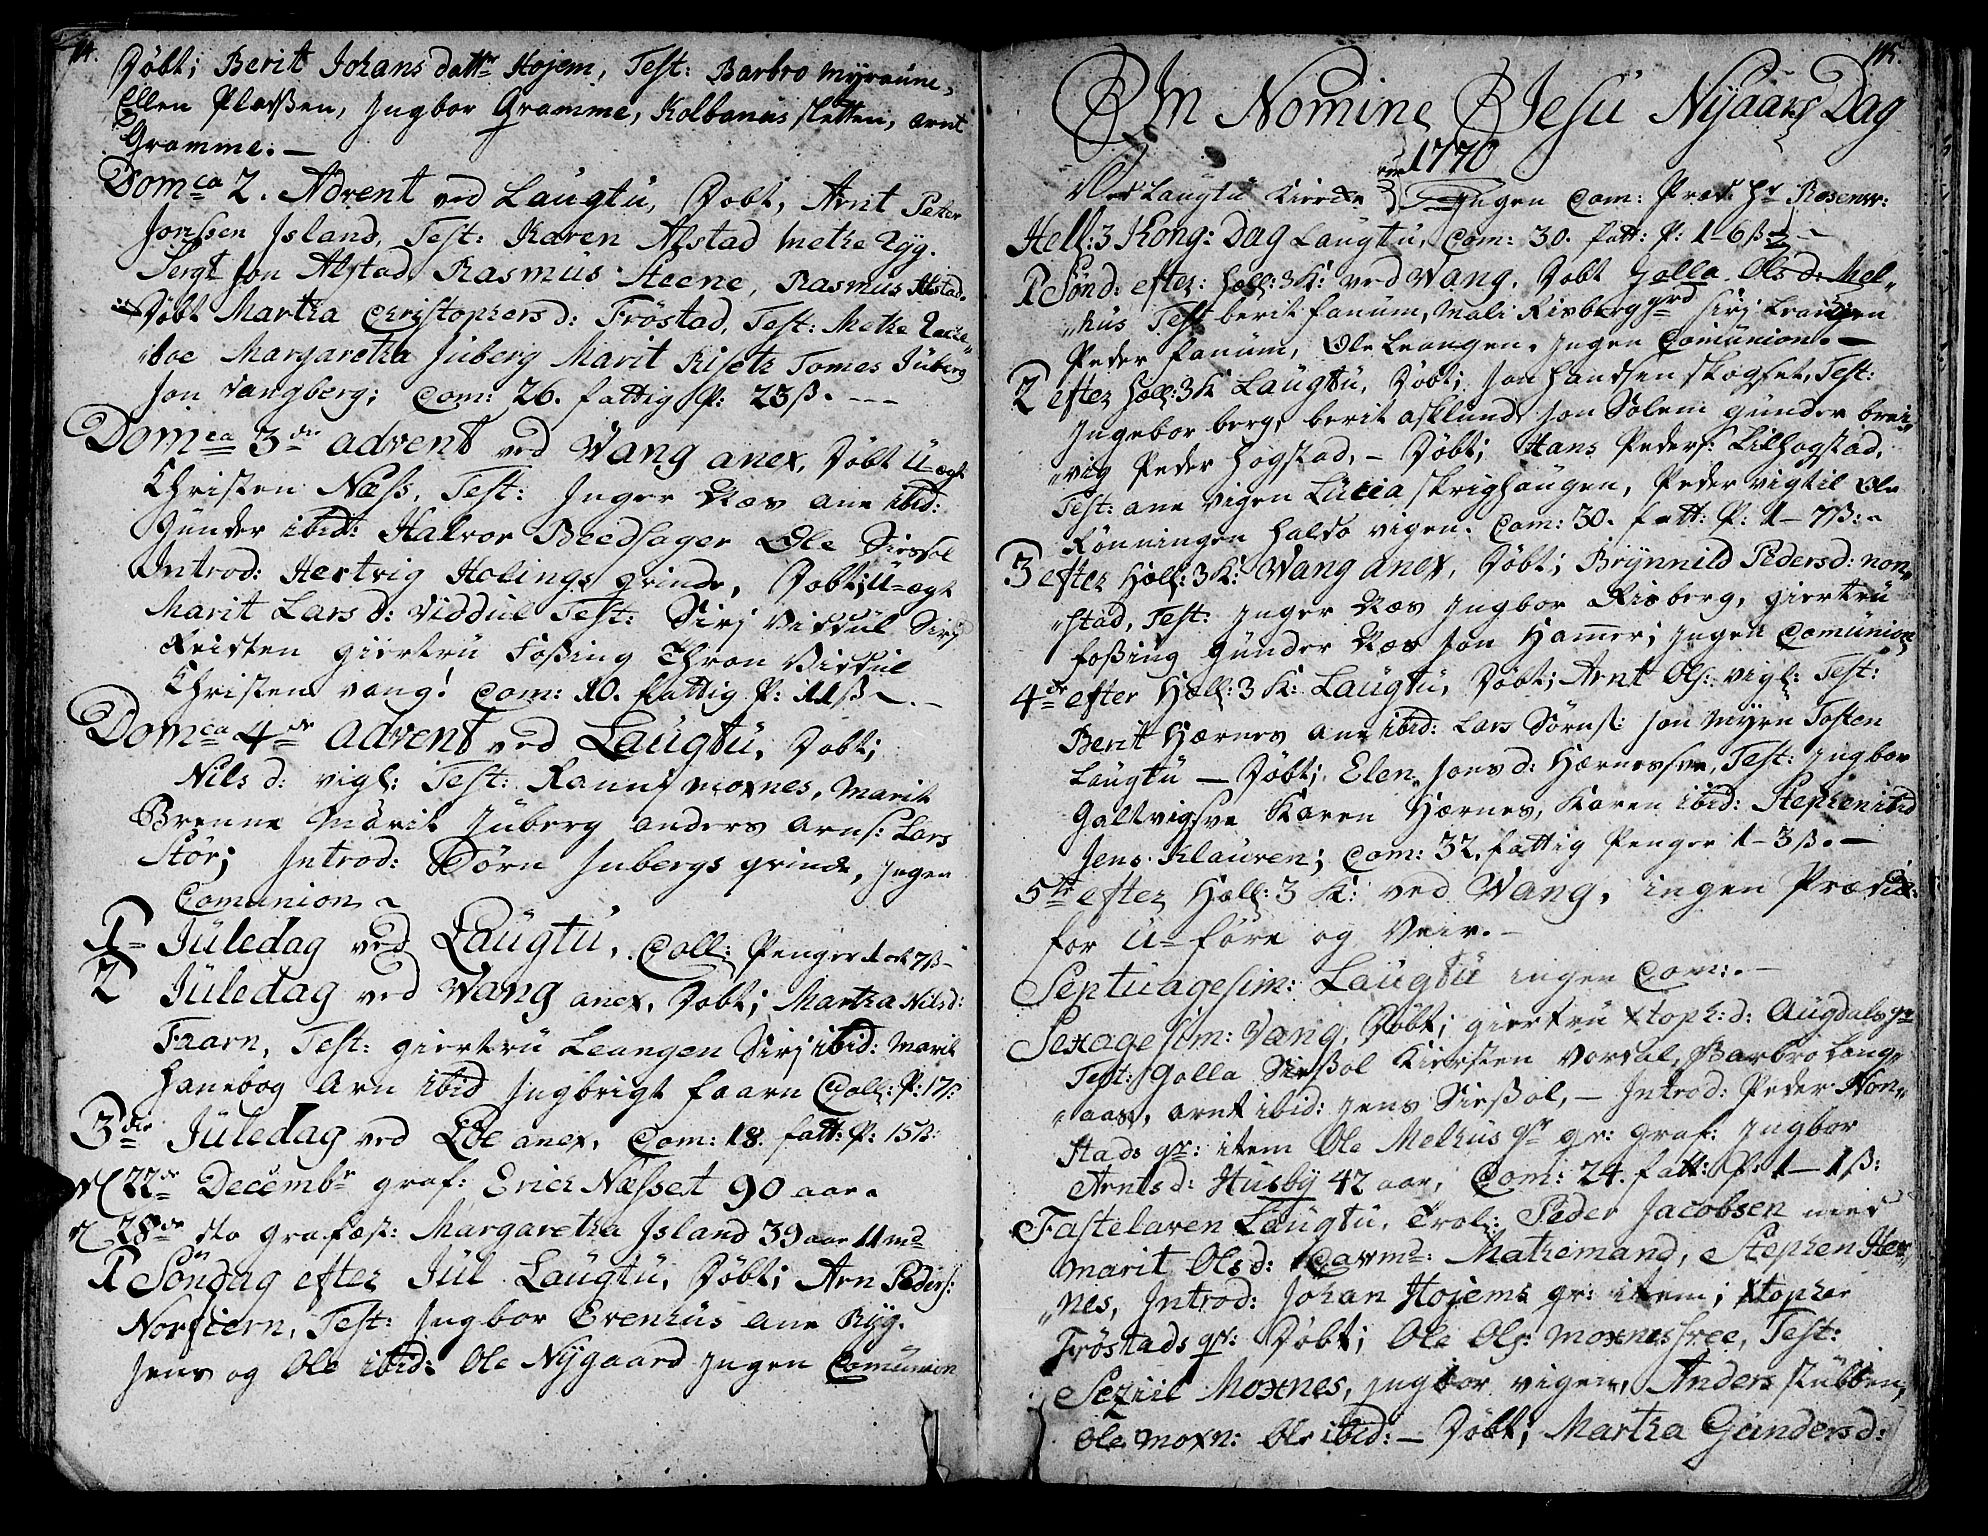 114.
Døbt; Berit Johans dattr Hojem, Test: Barbro Myraune,
Ellen Pladsen, Jngbor Gramme, Kolbanus sletten, arnt
Gramme. —
Domca 2. Advent ved Laugtu, Døbt, Arnt Peter
Jonssen Jsland, Test: Karen Alstad Metha Ryg.
Sergt Jon Alstad, Rasmus Steene, Rasmus Alstad.
Døbt Martha Christophersd: Fröstad, Test: Metha
boe Margaretha Juberg Marit Riseth Tomes Juberg
Jon Vangberg; Com: 26. fattig P: 23ß. ---
Domca 3die advent ved Vang anex, Døbt U-ægt
Christen Næss, Test: Jnger Næs ane ibid:
Gunder ibid: Halvor Bredsager Ole
Jntrod: Hertvig Holings qvinde, Døbt; U-ægt
Marit Larsd: Viddul Test: Siri Viddul Siri
Reisten giertru Fossing Thron Viddul
Christen vang! Com: 10. fattig P: 11ß -
Domca 4de advent ved Laugtu, Døbt;
Nils d: vigl: Test: Ranni moxnes, Marit
Brenne Marit Juberg anders arns: Lars
Stör; Jntrod: Törn Jubergs qvinde, Jngen
Comunion ~
1= Juledag ved Laugtu, Coll: Penger 1 ort 7ß -
2 Juledag ved Wang anex, Døbt; Martha Nilsd:
Faarn, Test: giertru Leangen Siri ibid: Marit
Hanebog Arn ibid Jngbrigt faarn Coll: P: 17ß:
3die Juledag ved Ebe anex, Com: 18. fatt: P: 15ß:
22de Decembr graf: Erich Næsset 90 aar.
28de dto grafæst: Margaretha Jsland 39 aar 11 md
1 Söndag efter Jul Laugtu, Døbt; Arn Peders:
Nordiern, Test: Jngbor Evenhus ane Ryg.
Jens og Ole ibid: Ole Nygaard Jngen Comunion
115.
In Nomine Jesu Nyaars Dag
1770
Ved Laugtu Kierche Jngen Com: Præd: Hr Rosenvr:
Hell: 3 Kong: Dag Laugtu, Com: 30. fatt: P: 1-6ß -
1 Sönd: efter: Hell: 3 K: ved Vang, Døbt Golla Olsd: Mel„
„hus Test berit fanum, Mali Risberggrd Siri Leangen
Peder fanum, Ole Leangen, Jngen Comunion. —
2 efter Hell: 3 K Laugtu, Døbt; Jon Handsen skogset, Test:
Jngebor berg, berit asklund Jon Solem gunder brei„
„vig Peder Hogstad, — Døbt; Hans Peders: Lilhogstad,
Test: ane vigen Lucia skrighaugen, Peder vigtil Ole
Rönningen Haldo vigen. Com: 30. fatt: P: 1-7ß: ~
3 efter Hell: 3 K: Wang anex, Døbt; Brynnild Pedersd: non„
„stad, Test: Jnger Næs Jngbor Risberg, giertru
Fossing Gunder Næs Jon Hamer; Jngen Comunion
4de efter Hell: 3 K: Laugtu, Døbt; Arnt Ols: vigl: Test:
Berit Hærnes ane ibid: Lars Sörns: Jon Myre Tosten
Laugtu — Døbt; Elen Jonsd: Hærnessve, Test: Jngbor
Galtvigsve Karen Hærnes, Karen ibid: Stephen ibid
Jens Klauren; Com: 32. fattig Penger 1-3ß. —
5te efter Hell: 3 K: ved Wang, ingen Prædik:
for U-före og Veir. —
Septuagesim: Laugtu ingen Com: —
Sexagesim: Vang, Døbt; giertru xtoph: d: Augdalsgr
Test: Golla Kiersten Vordal, Barbro Lang„
„aas, arnt ibid: Jens — Jntrod: Peder Non„
stads qv: item Ole Melhus qv gr: graf: Jngbor
Arntsd: Husby 42 aar, Com: 24. fatt: P: 1-1ß:
Fastelaven Laugtu, Trol: Peder Jacobsen med
Marit Olsd: Cavmd: Mathemand, Stephen Her„
„nes, Jntrod: Johan Hojems qv: item; Xtopher
Fröstads qv: Døbt; Ole Ols: moxnessvee, Test:
Moxnes, Jngbor vigen, Anders stubben,
Ole moxn: Ole ibid: — Døbt; Martha Gundersd: